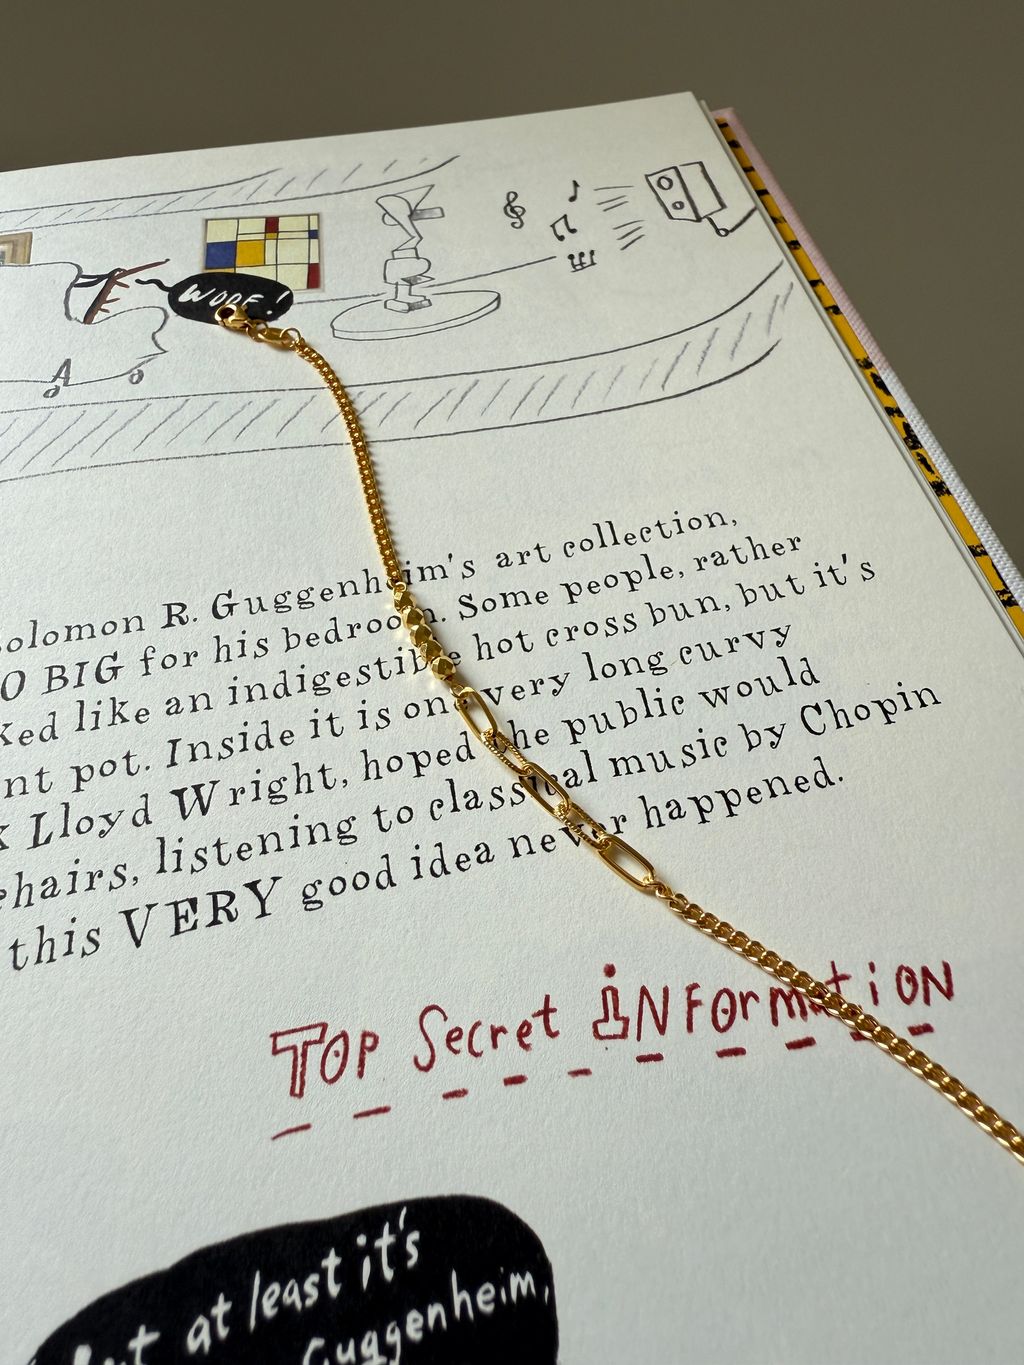 WOOF!
olomon R. Guggenheim's art collection,
O BIG for his bedroom. Some people, rather
ked like an indigestible hot cross bun, but it's
nt pot. Inside it is one very long curvy
k Lloyd Wright, hoped the public would
chairs, listening to classical music by Chopin
this VERY good idea never happened.
TOP Secret iNFormation
at least it's
Guggenheim,